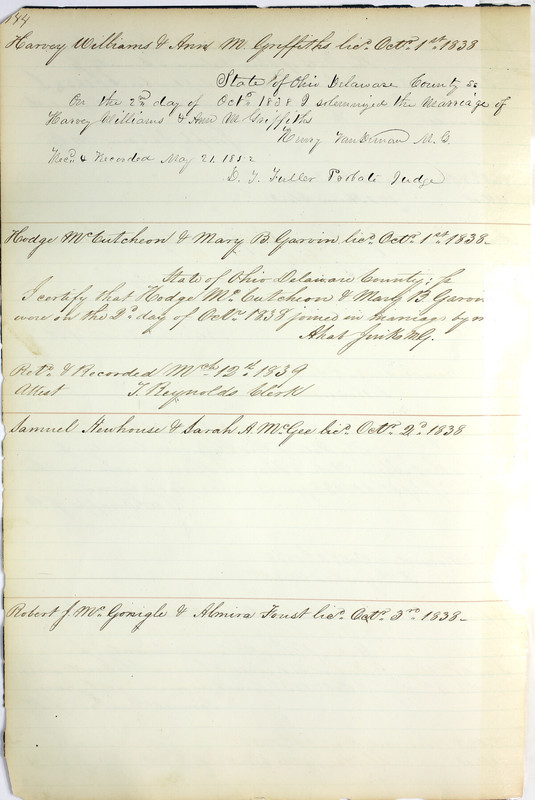 144
Harvey Williams & Ann M. Griffiths lic^d. Oct^r. 1^st. 1838
State of Ohio Delaware County ss
On the 2^nd day of Oct^r. 1838 I solemnized the Marriage of
Harvey Williams & Ann M Griffiths
Henry Van Deman M. G.
Rec^d & Recorded May 21. 1852
D. T. Fuller Probate Judge
Hodge M^c.Cutcheon & Mary B. Garvin lic^d. Oct^r. 1^st. 1838
State of Ohio Delaware County: ss
I certify that Hodge M^c. Cutcheon & Mary B Garvin
were on the 2^d. day of Oct^r. 1838 joined in marriage by
Ahab Jinks M.G.
Ret^d. & Recorded Mch. 12^th. 1839
Attest T. Reynolds Clerk
Samuel Newhouse & Sarah A. M^cGee lic^d. Oct^r. 2^d. 1838
Robert J. M^c. Gonigle & Almira Foust lic^d. Oct^r. 3^rd. 1838